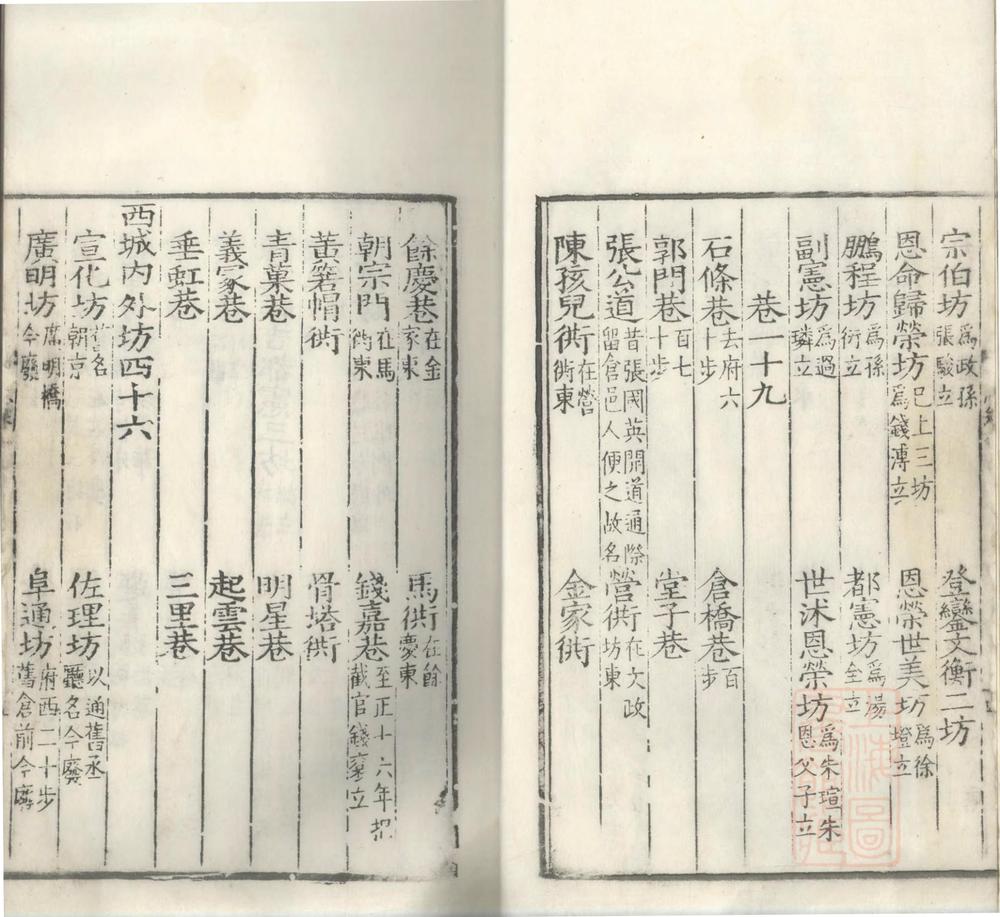 宗伯坊 爲政孫張駿立 登鑾文衡二坊
恩命歸榮坊 已上三坊爲錢溥立 恩榮世美坊 爲徐墱立
鵬程坊 爲孫衍立 都憲坊 爲侯仝立
副憲坊 爲過璘立 世沭恩榮坊 爲朱瑄朱恩父子立
巷一十九
石條巷 去府六十步 倉橋巷 百步
郭門巷 百七十步 堂子巷
張公道 昔張國英開道通際留倉邑人便之故名 營衖 在文政坊東
陳孩兒衖 在營衖東 金家衖
餘慶巷 在金家東 馬衖 在餘慶東
朝宗門 在馬衖東 錢嘉巷 至正十六年
黃箬帽衖 骨塔衖
青菓巷 明星巷
義冢巷 起雲巷
垂虹巷 三里巷
西城内外坊四十六
宣化坊 舊名朝京 佐理坊 以通舊丞廳名今廢
廣明坊 席明橋今廢 阜通坊 府西二十步舊倉前今廢